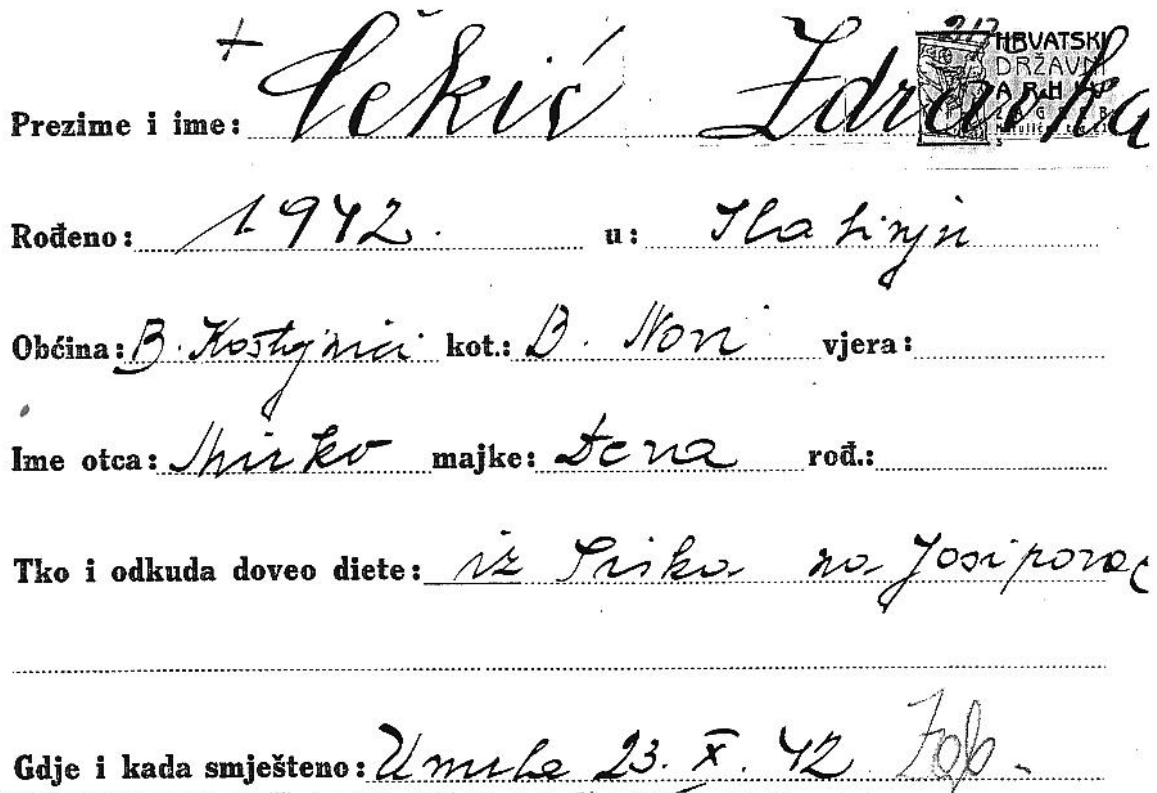 + Čekić Zdravka
217
HRVATSKI
DRŽAVNI
ARHIV
ZAGREB
Marulićev trg 21
3
Prezime i ime:
Rođeno: 1942. u: Slatinji
Obćina: B. Kostajnici kot.: B. Novi vjera:
Ime otca: Mirko majke: Deva rođ.:
Tko i odkuda doveo diete: iz Siska na Josipovac
Gdje i kada smješteno: Umrla 23. X. 42